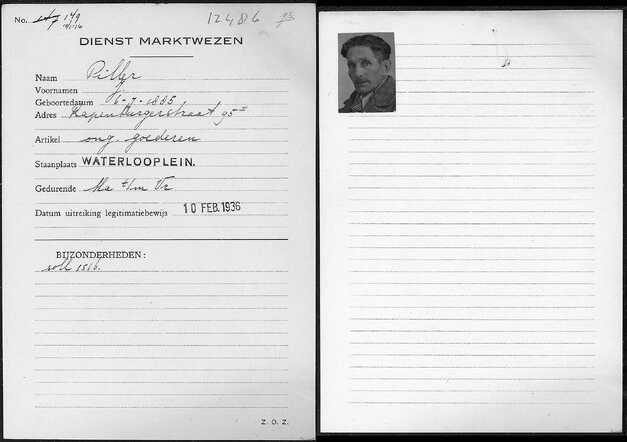 No. 149
12486
DIENST MARKTWEZEN
Naam Piller
Voornamen J
Geboortedatum 6-7-1885
Adres Rapenburgerstraat 95 II
Artikel ong. goederen
Staanplaats WATERLOOPLEIN.
Gedurende Ma t/m Vr
Datum uitreiking legitimatiebewijs 10 FEB. 1936
BIJZONDERHEDEN:
soll 1516.
Z. O. Z.